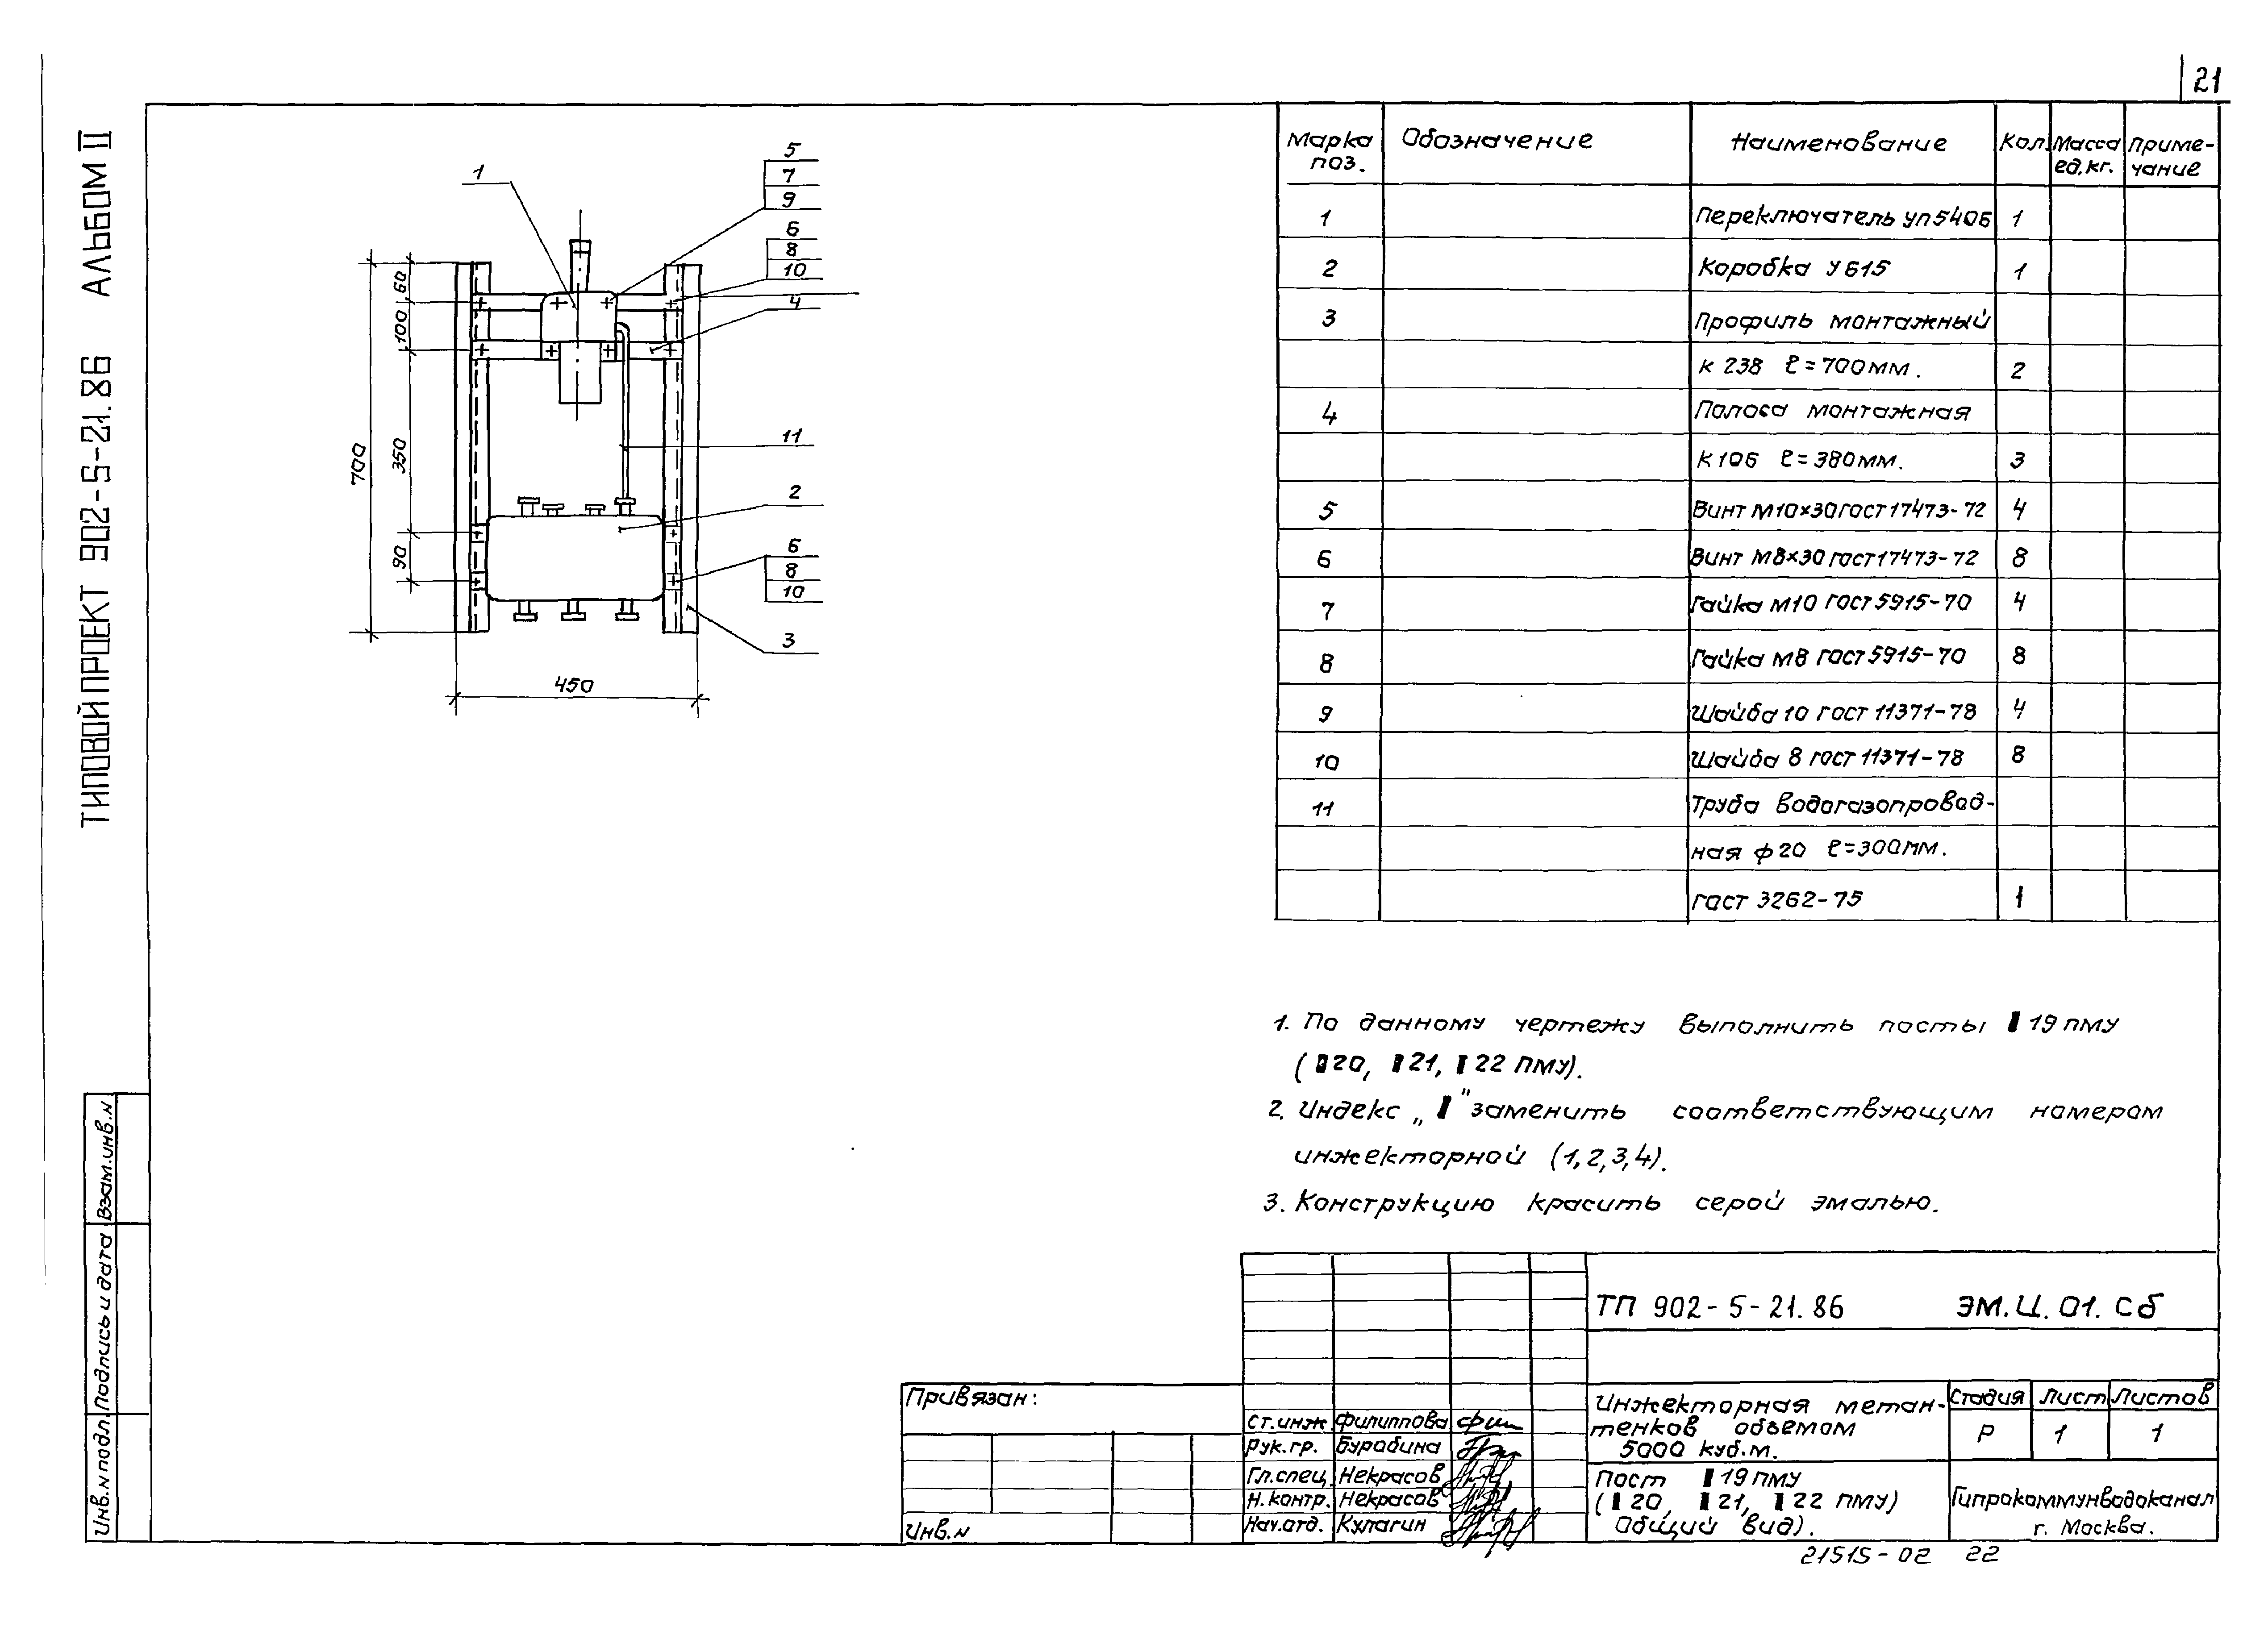 21
ТИПОВОЙ ПРОЕКТ 902-5-21.86 АЛЬБОМ II
1
5
7
9
6
8
10
4
11
2
6
8
10
3
60
100
350
90
700
450
Марка поз. Обозначение Наименование Кол. Масса ед.кг. Примечание
1 Переключатель УП5406 1
2 Коробка У615 1
3 Профиль монтажный
К 238 ℓ=700мм. 2
4 Полоса монтажная
К106 ℓ=380мм. 3
5 Винт М10×30 ГОСТ 17473-72 4
6 Винт М8×30 ГОСТ 17473-72 8
7 Гайка М10 ГОСТ 5915-70 4
8 Гайка М8 ГОСТ 5915-70 8
9 Шайба 10 ГОСТ 11371-78 4
10 Шайба 8 ГОСТ 11371-78 8
11 Труба водогазопровод-
ная ф20 ℓ=300мм.
ГОСТ 3262-75 1
1. По данному чертежу выполнить посты I 19 ПМУ
(I 20, I 21, I 22 ПМУ).
2. Индекс „I" заменить соответствующим номером
инжекторной (1,2,3,4).
3. Конструкцию красить серой эмалью.
ТП 902-5-21.86 ЭМ.И.01.СБ
Привязан:
Инв.N
Ст.инж Филиппова
Рук.гр. Бурабина
Гл.спец. Некрасов
Н.контр. Некрасов
Нач.отд. Кулагин
Инжекторная метан-
тенков объемом
5000 куб.м.
Стадия Лист Листов
Р 1 1
Пост I 19 ПМУ
(I 20, I 21, I 22 ПМУ)
Общий вид).
Гипрокоммунводоканал
г. Москва.
21515-02 22
Инв.N подл. Подпись и дата Взам.инв.N